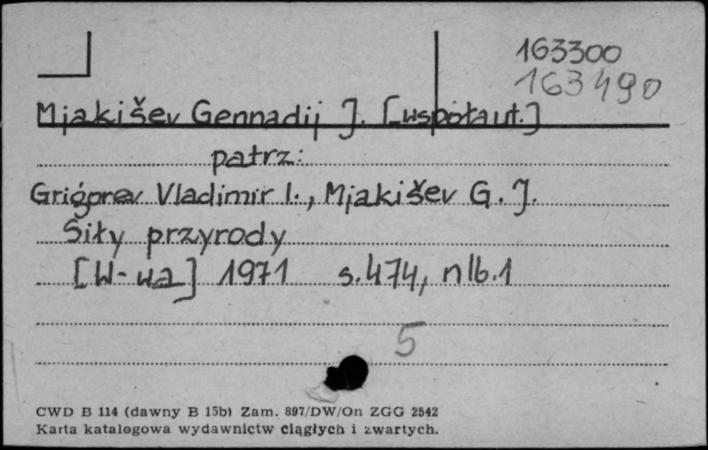 163300
163490
Mjakišev Gennadij J. [współaut.]
patrz:
Grigorev Vladimir I., Mjakišev G. J.
Siły przyrody
[W-wa] 1971 s.474, nlb.1
5
CWD B 114 (dawny B 15b) Zam. 897/DW/On ZGG 2542
Karta katalogowa wydawnictw ciągłych i zwartych.